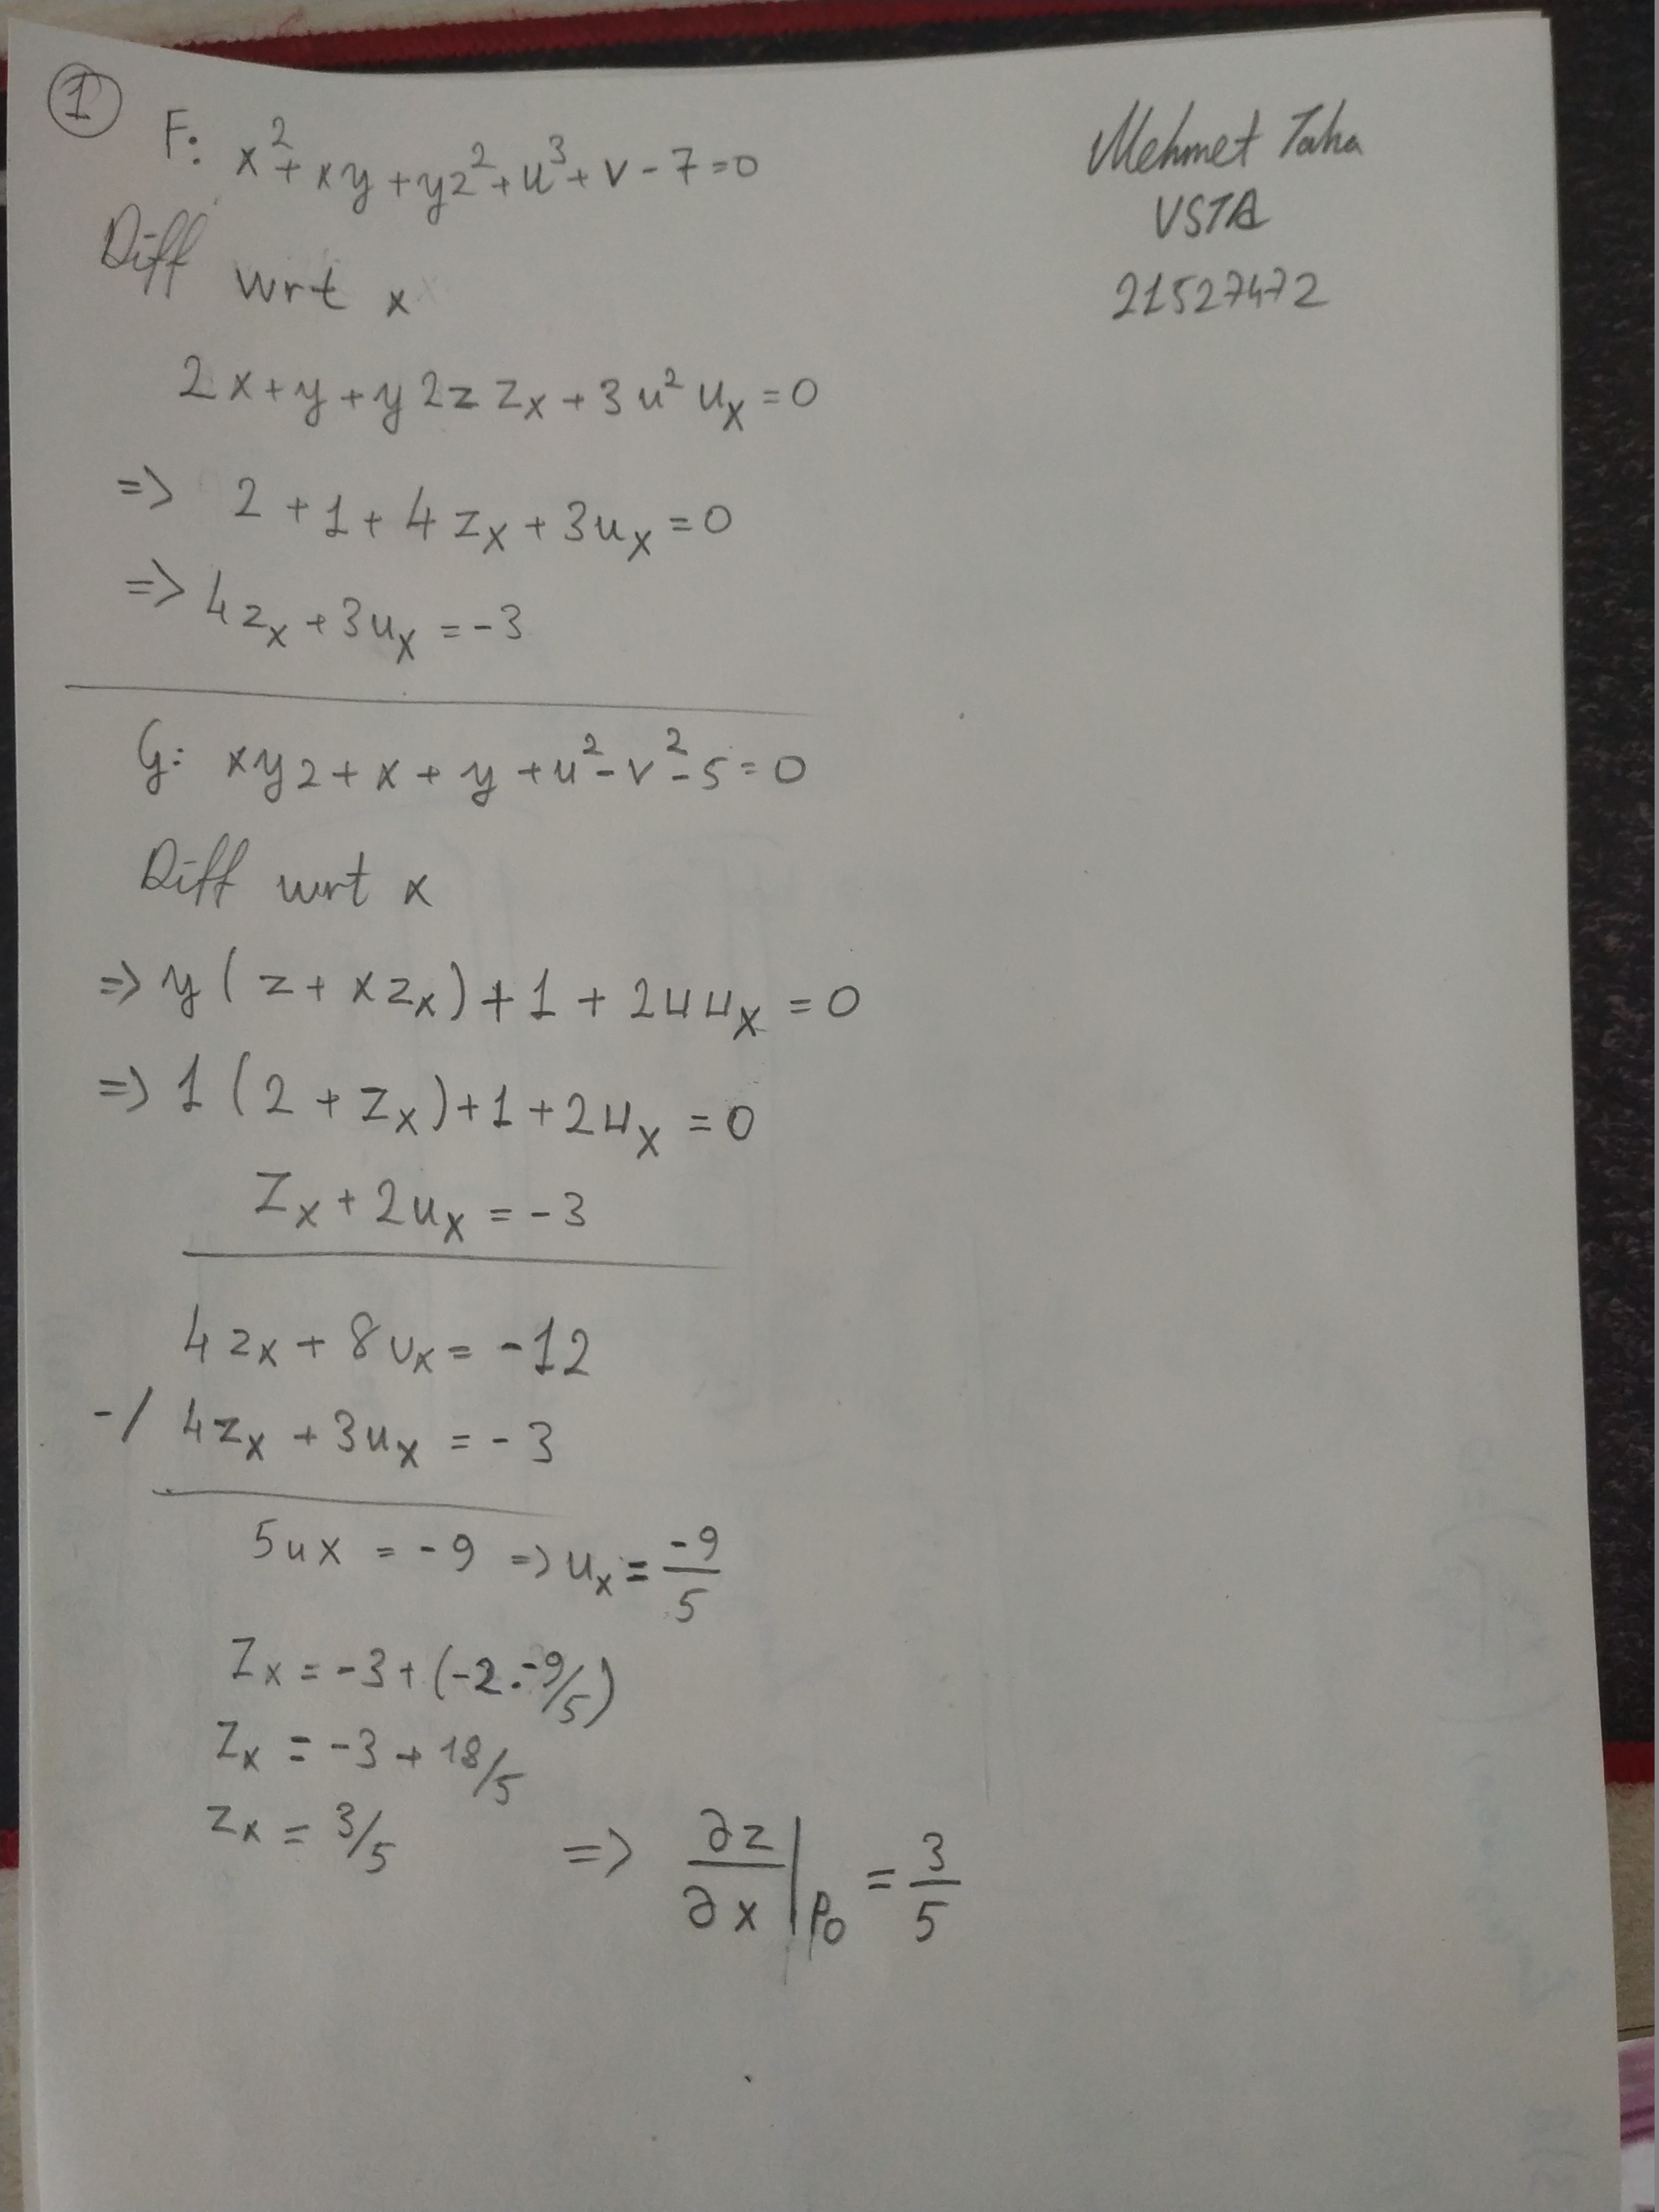 ①
F: x² + xy + yz² + u³ + v - 7 = 0
Mehmet Taha
USTA
21527472
Diff wrt x
2x + y + y2z zₓ + 3u² uₓ = 0
=> 2 + 1 + 4zₓ + 3uₓ = 0
=> 4zₓ + 3uₓ = -3
G: xyz + x + y + u² - v² - 5 = 0
Diff wrt x
=> y(z + xzₓ) + 1 + 2uuₓ = 0
=> 1(2 + zₓ) + 1 + 2uₓ = 0
zₓ + 2uₓ = -3
4zₓ + 8uₓ = -12
-/ 4zₓ + 3uₓ = -3
5ux = -9 => uₓ = -9/5
zₓ = -3 + (-2.-9/5)
zₓ = -3 + 18/5
zₓ = 3/5 => ∂z/∂x |P₀ = 3/5